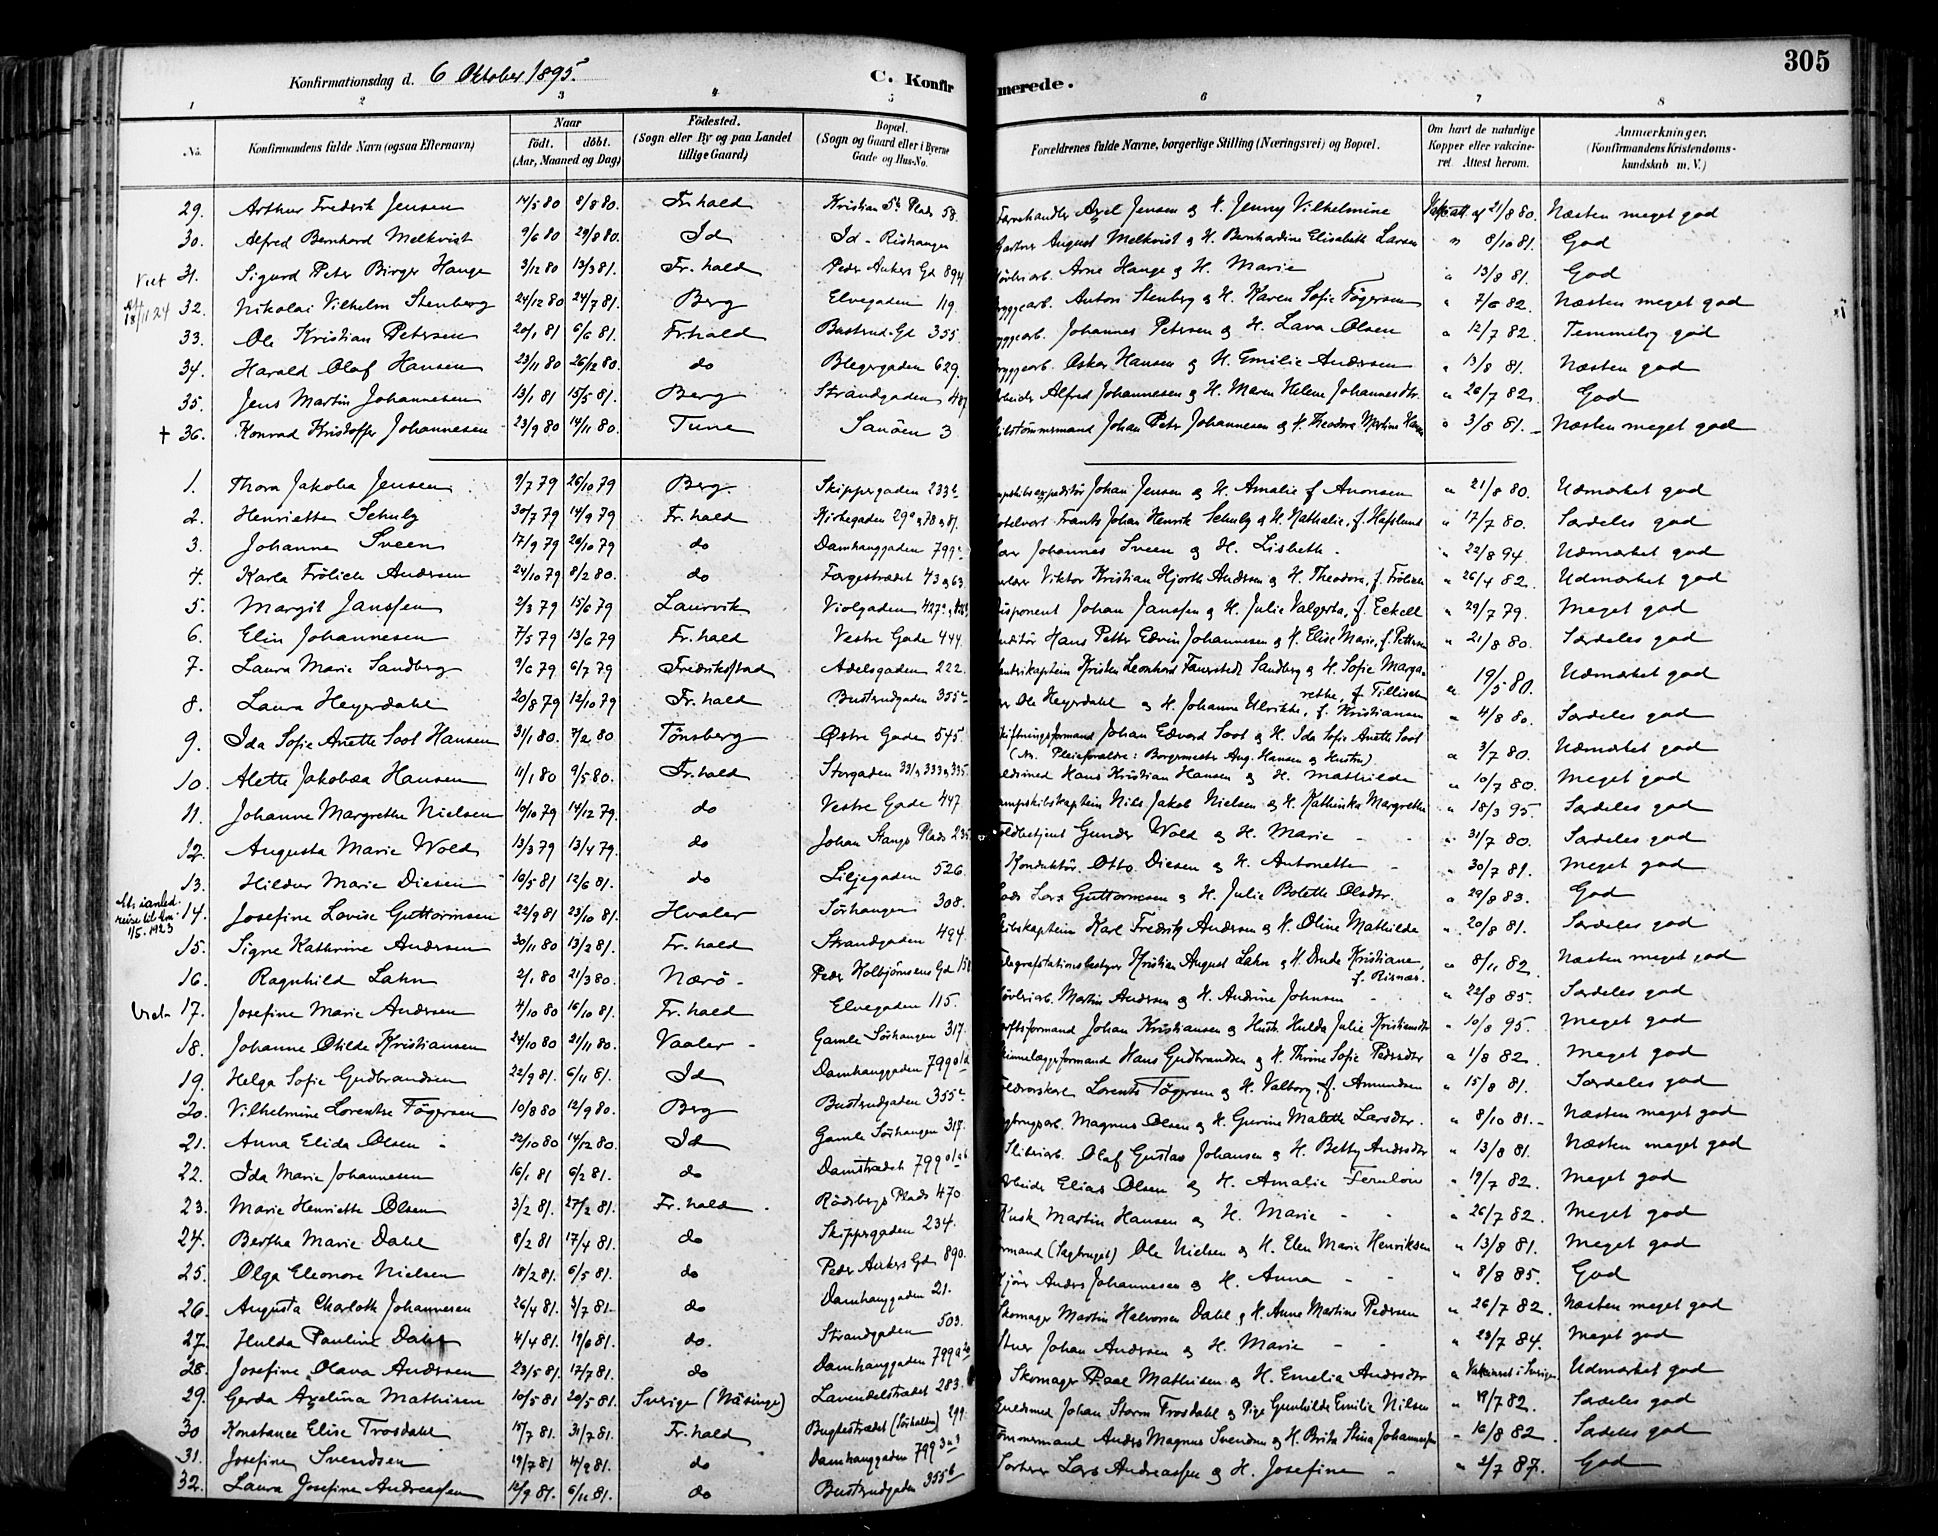 305
Konfirmationsdag d. 6 Oktober 1895.
C. Konfirmerede.
1 2 3 4 5 6 7 8
No.
Konfirmandens fulde Navn (ogsaa Efternavn)
Naar
födt. döbt.
(Aar, Maaned og Dag)
Födested.
(Sogn eller By og paa Landet tillige Gaard)
Bopæl.
(Sogn og Gaard eller i Byerne Gade og Hus-No.
Forældrenes fulde Navne, borgerlige Stilling (Næringsvei) og Bopæl.
Om havt de naturlige Kopper eller vakcineret. Attest herom.
Anmærkninger.
(Konfirmandens Kristendomskundskab m. V.)
29. Arthur Fredrik Jensen 14/5 80 8/8 80. Fr.hald Kristian 5te Plads 58. Axel Jensen og H. Jenny Vilhelmine 21/8 80. Næsten meget god
30. Alfred Bernhard Melkvist 9/6 80 29/8 80. Id Id - Rishaugen Gartner August Melkvist og H. Bernhardine Elisabeth Larsen " 8/10 81. God
Viet 31. Sigurd Peter Birger Hauge 3/12 80 13/3 81. Fr.hald Peder Ankers Gd 894 Arne Hauge og H. Marie " 13/8 81. God
18/11 24 32. Nikolai Vilhelm Stenberg 24/12 80 24/7 81. Berg Elvegaden 119. Anton Stenberg og H. Karen Sofie Tögersen " 7/6 82. Næsten meget god
33. Ole Kristian Petersen 20/1 81 6/6 81. Fr.hald Busterud-Gd 355 Johannes Petersen og H. Lava Olsen " 12/7 82. Temmelig god
34. Harald Olaf Hansen 23/11 80 26/12 80. do Blegegaden 629. Oskar Hansen og H. Emilie Andersen " 13/8 81. Næsten god
35. Jens Martin Johannesen 13/1 81 15/5 81. Berg Strandgaden Alfred Johannesen og H. Maren Helene Johannesdtr. " 26/7 82. God
† 36. Konrad Kristoffer Johannesen 23/9 80 14/11 80. Tune Sanöen 3 Johan Peter Johannesen og H. Theodora Martine " 3/8 81. Næsten meget god
1. Thora Jakoba Jensen 9/7 79 26/10 79 Berg. Skippergaden 233b Johan Jensen og H. Amalie f. Aronsen " 21/8 80. Udmærket god
2. Henriette Schulz 30/7 79 14/9 79 Fr.hald Kirkegaden Frantz Johan Henrik Schulz og H. Nathalie, f. Hafslund " 17/7 80. Særdeles god
3. Johanne Sveen 17/9 79 20/10 79 do Damhauggaden 799 Johannes Sveen og H. Lisbeth. " 22/8 94. Udmærket god
4. Karla Frölich Andersen 24/10 79 8/2 80. do Færgestrædet 43 og 63 Viktor Kristian Hjorth Andersen og H. Theodora, f. Frölich " 26/4 82. Udmærket god
5. Margit Janssen 2/3 79 15/6 79 Laurvik Violgaden Disponent Johan Janssen og H. Julie Valgerda, f. Eckell " 29/7 79. Meget god
6. Elin Johannesen 7/5 79 13/6 79 Fr.hald Vestre Gade 444. Hans Petter Edvin Johannesen og H. Elise Marie, f. Pettersen " 21/8 80. Særdeles god
7. Laura Marie Sandberg 9/6 79 6/7 79 Fredrikstad Adelsgaden 222. Kristen Leonhard Sandberg og H. Sofie Margarethe, f. Tillisch 19/5 80. Udmærket god
8. Laura Heyerdahl 20/8 79 12/10 79 Fr.hald Busterudgaden 355 Ole Heyerdahl og H. Johanne Ulrikke, f. Kristiansen " 4/8 80. Særdeles god
9. Ida Sofie Anette Soot Hansen 31/1 80. 7/2 80 Tönsberg Østre Gade 545. Johan Edvard Soot og H. Ida Sofie Anette Soot
(Pleieforældre: Borgermester Aug. Hansen og Hustru) " 3/7 80. Udmærket god
10. Alette Jakobæa Hansen 11/1 80 9/5 80. Fr.hald Storgaden 331 og 333 og 335. Hans Kristian Hansen og H. Mathilde " 10/7 80. Meget god
11. Johanne Margrethe Nielsen 10/10 79 14/12 79. do Vestre Gade 447. Nils Jakob Nielsen og H. Kathinka Margrethe " 18/3 95. Særdeles god
12. Augusta Marie Wold 13/3 79 13/4 79. do Johan Stangs Plads 235 Toldbetjent Gunder Wold og H. Marie " 31/7 80. Særdeles god
13. Hildur Marie Diesen 10/5 81 12/6 81. do Liljegaden 526. Konduktör. Otto Diesen og H. Antonette " 30/7 81. Meget god
1/5. 1923 14. Josefine Lovise Guttormsen 22/9 81 23/10 81. Hvaler Sörhaugen 308. Lods Lars Guttormsen og H. Julie Bolette Olsdtr. " 29/8 83. God
15. Signe Kathrine Andersen 30/11 80 13/2 81. Fr.hald Strandgaden 494. Skibskaptein Karl Fredrik Andersen og H. Oline Mathilde " 20/8 81. Særdeles god
16. Ragnhild Lahn 2/1 80 21/3 80. Nærö. Peder Kolbjörnsens Gd Telegrafstationsbestyrer Kristian August Lahn og H. Kristiane, f. Risnæs. " 8/11 82. Næsten meget god
17. Josefine Marie Andersen 4/10 80 16/10 81. Fr.hald Elvegaden 115. Martin Andersen og H. Andrine Johnsen " 22/8 85. Særdeles god
18. Johanne Otilde Kristiansen 24/10 80 21/11 80. Vaaler Gamle Sörhaugen 317. Johan Kristiansen og Hust. Hulda Julie Kristiansdtr " 10/8 95. Meget god
19. Helga Sofie Gudbrandsen 22/9 81. 6/11 81. Id Damhauggaden 799 Hans Gudbrandsen og H. Thrine Sofie Pedersdtr " 1/8 82. Meget god
20. Vilhelmine Lorentze Tögersen 10/8 80 12/9 80. Berg Busterudgaden 355 Lorents Tögersen og H. Valborg, f. Amundsen " 15/8 81. Særdeles god
21. Anna Elida Olsen 22/10 80 14/12 80. Id Gamle Sörhaugen 317. Magnus Olsen og H. Gurine Malette Larsdtr. " 8/10 81. Næsten meget god
22. Ida Marie Johannesen 16/1 81 6/2 81. do Damstrædet 799 Sliberiarb. Olaf Gustav Johansen og H. Betty Andersdtr " 13/8 81. Næsten meget god
23. Marie Henriette Olsen 3/2 81. 27/2 81. Fr.hald Rödsbergs Plads 470. Elias Olsen og H. Amalie " 19/7 82. Meget god
24. Bertha Marie Dahl 8/2 81 17/4 81. do Skippergaden 234. Kusk Martin Hansen og H. Marie " 26/7 82. Meget god
25. Olga Eleonore Nielsen 18/2 81. 6/5 81. do Peder Ankers Gd 890. Formand (Sagbruget) Ole Nielsen og H. Elen Marie Henriksen " 13/8 81. Meget god
26. Augusta Charlotte Johannesen 26/4 81. 3/7 81. do Damhauggaden 21. Anders Johannesen og H. Anna " 8/8 85. God
27. Hulda Pauline Dahl 4/4 81. 19/6 81. do. Strandgaden 503. Skomager Martin Halvorsen Dahl og H. Anne Martine Pedersen " 26/7 82. Næsten meget god
28. Josefine Olava Andersen 23/5 81. 17/7 81. do Damhauggaden 799 Johan Andersen og H. Marie " 23/7 84. Meget god
29. Gerda Axelina Mathisen 10/5 81 20/5 81. Sverige (Näsinge) Lavendelstrædet 283. Skomager Paal Mathisen og H. Emelia Andersdtr " Vakcineret i Sverige Udmærket god
30 Konstance Elise Trosdahl 15/7 81. 31/7 81. Fr.hald Bugtestrædet (Sörhalden) 299. Guldsmed Johan Storm Trosdahl og Pige Gunhilde Emilie Nilsen " 19/7 82. Særdeles god
31. Josefine Svendsen 19/7 81 4/9 81. do Damhauggaden 799 Tömmermand Anders Magnus Svendsen og H. Brita Stina Johannessen " 16/8 82. Særdeles god
32. Laura Josefine Andreassen 12/9 81. 6/11 81. do Busterudgaden 355b Sorterer Lars Andreassen og H. Josefine " 2/7 87. God